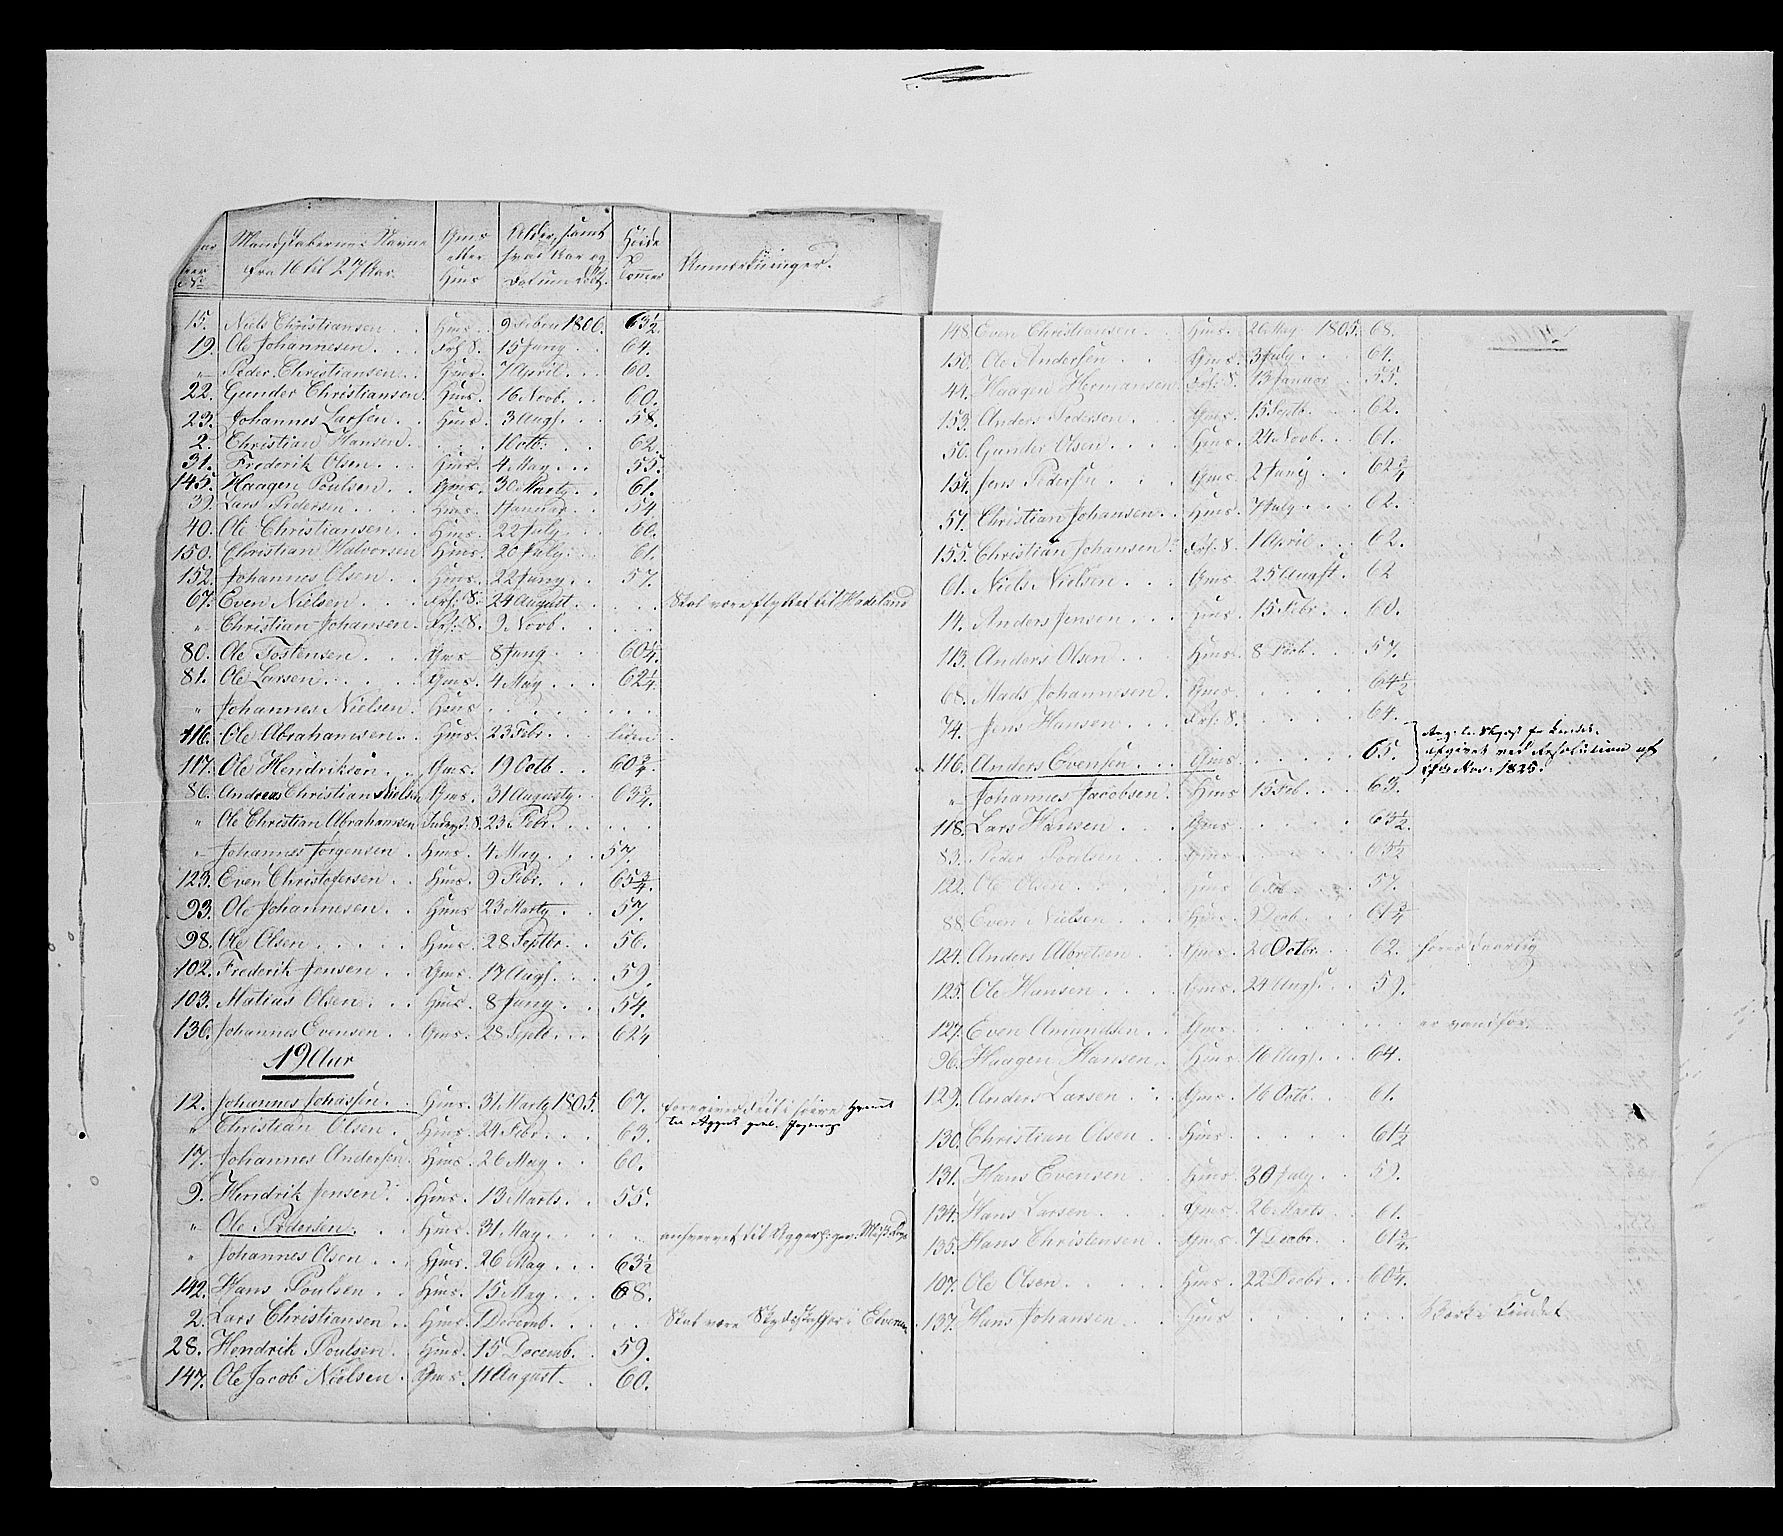 Mandskabernes Navne
fra 16 til 27 Aar.
Gms
eller
Hms
Alder, samt
hvad Aar og
Datum
Høide
Tommer
Anmærkninger.
15. Niels Christiansen Hms. 9 Febr. 1806. 63½
19. Ole Johannesen Frf. S. 15 Juny 64.
" Peder Christiansen Hms. 7 April 60.
22. Gunder Christiansen Hms. 16 Novb. 60.
23. Johannes Larsen Hms. 3 Augs. 58.
2. Christian Hansen 1 Octb. 62.
31. Frederik Olsen Hms. 4 May 55.
145. Haagen Poulsen Gms. 30 Marty 61.
39. Lars Pedersen Hms. Januar 54.
40. Ole Christiansen Hms. 22 July 60.
150. Christian Halvorsen Hms. 20 July 61.
152. Johannes Olsen Hms. 22 Juny 57.
67. Even Nielsen Frf. S. 24 August Skal være flyttet til Hadeland
" Christian Johansen Frf. S. 9 Novb.
80. Ole Tostensen Gms 8 Juny 60¼.
81. Ole Larsen Gms. 4 May 62¼.
" Johannes Nielsen Hms
116. Ole Abrahamsen Hms. 23 Febr. liden
117. Ole Hendriksen Gms. 19 Octb 60¾.
86. Andreas Christian Nielsen Gms. 31 Augusty 63¾.
" Ole Christian Abrahamsen S. 23 Febr.
" Johannes Jørgensen Hms. 4 May 57.
123. Even Christophersen Hms. 9 Febr. 65¾.
93. Ole Johannesen Huus 23 Marty 57.
98. Ole Olsen Hms. 28 Septbr. 56.
102. Frederik Jensen Gms. 17 Augs. 59.
103. Matias Olsen Hms. 8 Juny 54.
136. Johannes Evensen Gms. 28 Septb. 62¼
19 Aar
12. Johannes Johnsen Hms. 31 Marty 1805. 67.
" Christian Olsen Hms. 24 Febr. 63.
17. Johannes Andersen Hms. 26 May 60.
9. Hendrik Jensen Hms. 13 Marts 55.
" Ole Pedersen Hms. 31 May
" Johannes Olsen Hms. 26 May 63½
142. Hans Poulsen Hms. 15 May 68.
2. Lars Christiansen Hms. 1 Decemb. Skal være Skydsskaffer i
28. Hendrik Poulsen Hms. 15 Decemb. 59.
147. Ole Jacob Nielsen Gms. 11 August 60.
148. Even Christiansen Hms. 26 May 1805. 68.
150. Ole Andersen Gms. 3 July 64.
44. Haagen Hermansen Frf. S. 13 Januar 55.
153. Anders Pedersen Gms. 15 Septb. 62.
56. Gunder Olsen Hms. 24 Novb. 61.
154. Jens Pedersen Gms. 2 Junij 62¾
57. Christian Johansen Hms. 7 July 62.
155. Christian Johansen Frf. S. 1 April 62.
61. Niels Nielsen Gms. 25 Augst. 62
14. Anders Jensen Hms. 15 Febr. 60.
113. Anders Olsen Hms. 8 Decb. 57.
68. Mads Johannesen Gms. 64½
74. Jens Hansen Frf. S. 64.
116. Anders Evensen Gms. 65.
afgivet ved Resolution af
Nov. 1825.
" Johannes Jacobsen Hms 15 Feb. 63.
118. Lars Hansen Gms. 63½.
83. Peder Poulsen Gms. 63½
122. Ole Olsen Hms 6 Feb 57.
88. Even Nielsen Hms. 9 Decb. 61¾
124. Anders Abrelsen Gms. 20 Octbr. 62.
125. Ole Hansen Gms. 24 Augs. 59.
127. Even Amundsen Gms. er vandfør.
96. Haagen Hansen Hms. 16 Augs. 64.
129. Anders Larsen Gms. 16 Octb. 61.
130. Christian Olsen Hms. 61½
131. Hans Evensen Hms. 30 July 59.
134. Hans Larsen Gms. 26 Marts 61.
135. Hans Christensen Gms. 7 Decbr. 61¾.
107. Ole Olsen Hms. 22 Decbr. 60¼.
137. Hans Johansen Hms